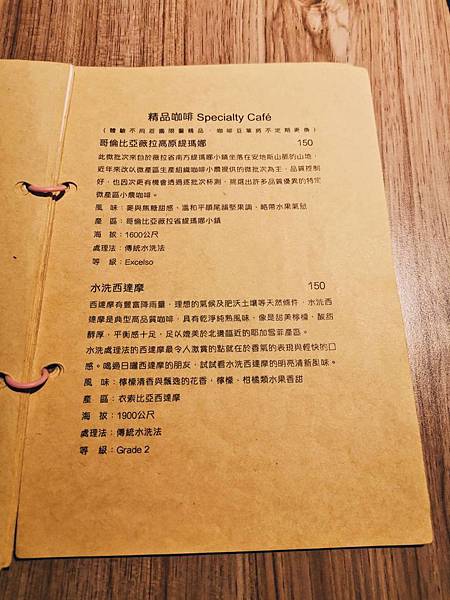 精品咖啡 Specialty Café
(體驗不同莊園限量精品，咖啡豆單將不定期更換)
哥倫比亞薇拉高原緹瑪娜 150
此微批次來自於薇拉省南方緹瑪娜小鎮坐落在安地斯山脈的山地，
近年來改以微產區生產組織咖啡小農提供的微批次為主，品質控制
好，也因次更有機會透過逐批次杯測，挑選出許多品質優異的特定
微產區小農咖啡。
風　味：麥與焦糖甜感、溫和平順尾韻堅果調、略帶水果氣息
產　區：哥倫比亞薇拉省緹瑪娜小鎮
海　拔：1600公尺
處理法：傳統水洗法
等　級：Excelso
水洗西達摩 150
西達摩有豐富降雨量，理想的氣候及肥沃土壤等天然條件，水洗西
達摩是典型高品質咖啡，具有乾淨純熟風味，像是甜美檸檬，酸甜
醇厚，平衡感十足，足以媲美於北邊區近的耶加雪菲產區。
水洗處理法的西達摩最令人激賞的點就在於香氣的表現與輕快的口
感。喝過日曬西達摩的朋友，試試看水洗西達摩的明亮清新風味。
風　味：檸檬清香與飄逸的花香，檸檬、柑橘類水果香甜
產　區：衣索比亞西達摩
海　拔：1900公尺
處理法：傳統水洗法
等　級：Grade 2